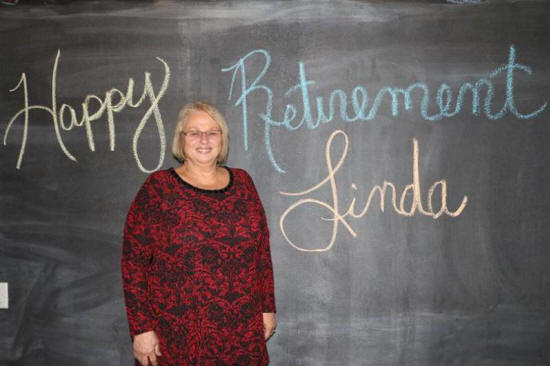 Happy Retirement
Linda